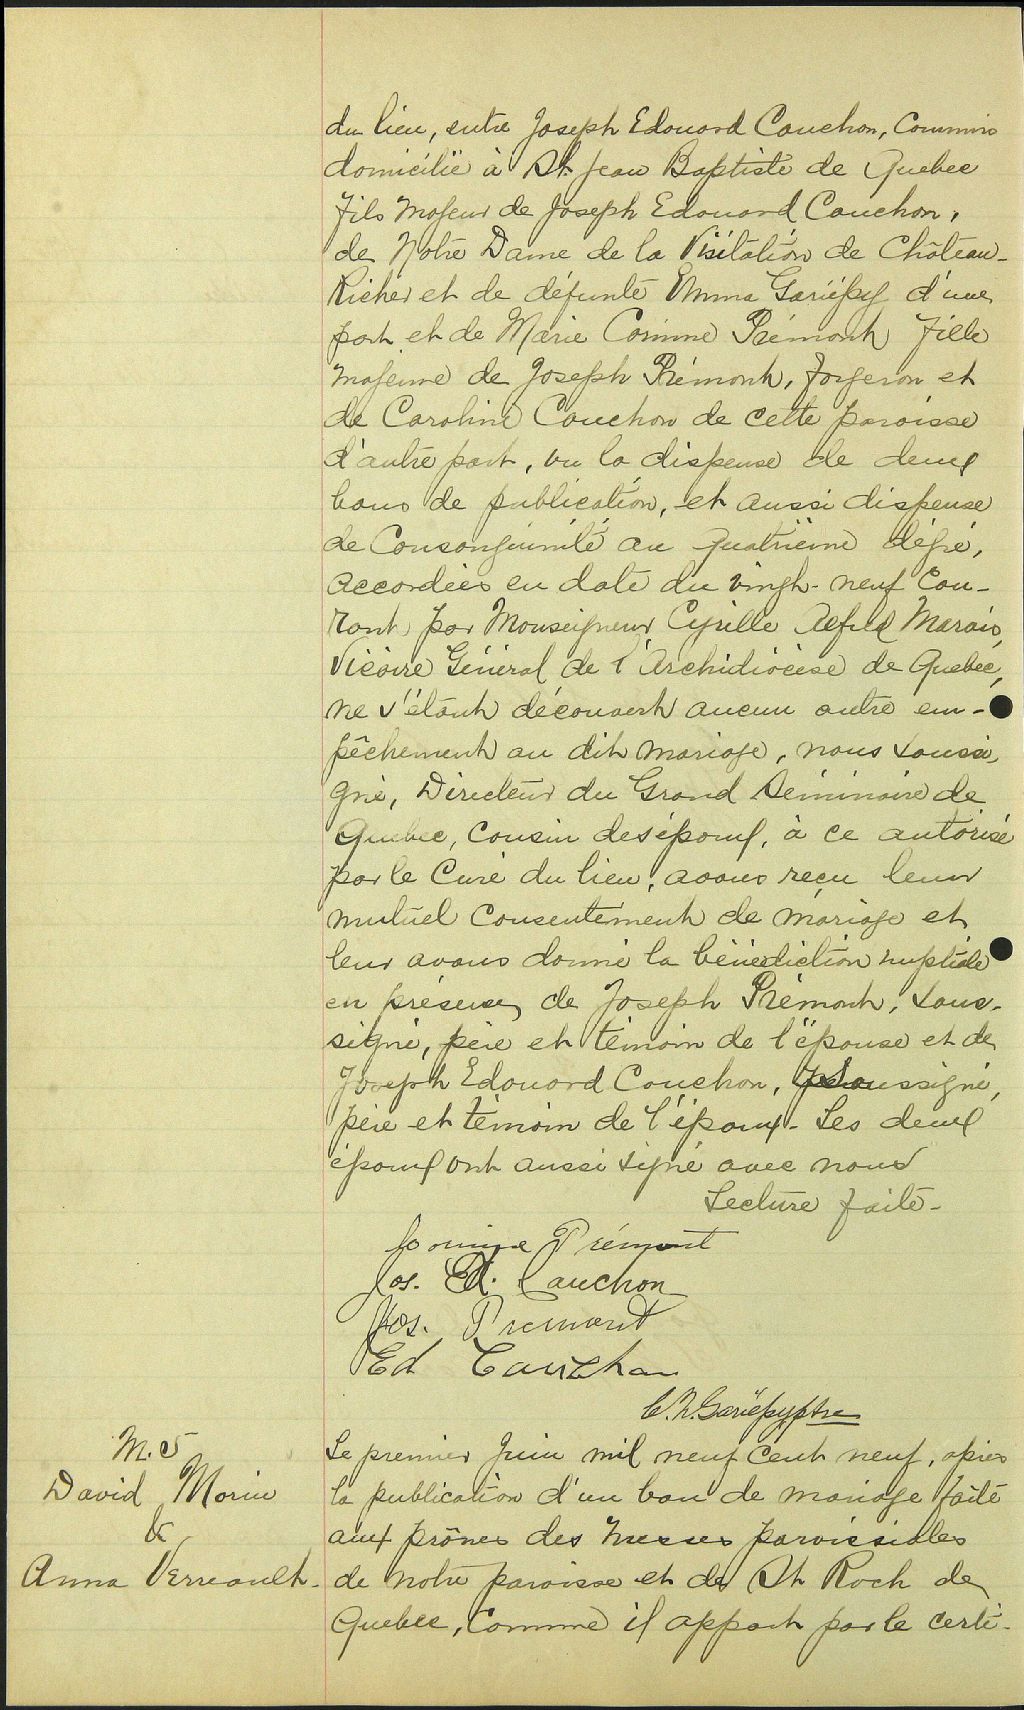 du lieu, entre Joseph Edouard Cauchon, Commis
domicilié à St Jean Baptiste de Quebec
fils majeur de Joseph Edouard Cauchon,
de Notre Dame de la Visitation de Château-
Richer et de défunte Emma Gariépy d'une
part et de Marie Corinne Prémont fille
majeure de Joseph Prémont, forgeron et
de Caroline Cauchon de cette paroisse
d'autre part, vu la dispense de deux
bans de publication, et aussi dispense
de Consanguinité au quatrième dégré,
accordées en date du vingt-neuf Cou-
rant par Monseigneur Cyrille Alfred Marois,
Vicaire Général de l'Archidiocèse de Quebec,
ne s'étant découvert aucun autre em-
pêchement au dit mariage, nous soussi-
gné, Directeur du Grand Séminaire de
Quebec, Cousin des époux, à ce autorisé
par le Curé du lieu, avons reçu leur
mutuel Consentement de mariage et
leur avons donné la bénédiction nuptiale
en présence de Joseph Prémont, sous-
signé, père et témoin de l'épouse et de
Joseph Edouard Cauchon, soussigné,
père et témoin de l'époux. Les deux
époux ont aussi signé avec nous
Lecture faite.
Corinne Prémont
Jos. Ed. Cauchon
Jos. Premont
Ed Cauchon
C. N. Gariépy ptre
M. 5
David Morin
&
Anna Verreault.
Le premier Juin mil neuf cent neuf, après
la publication d'un ban de mariage faite
aux prônes des messes paroissiales
de notre paroisse et de St Roch de
Quebec, Comme il appart par le certi-